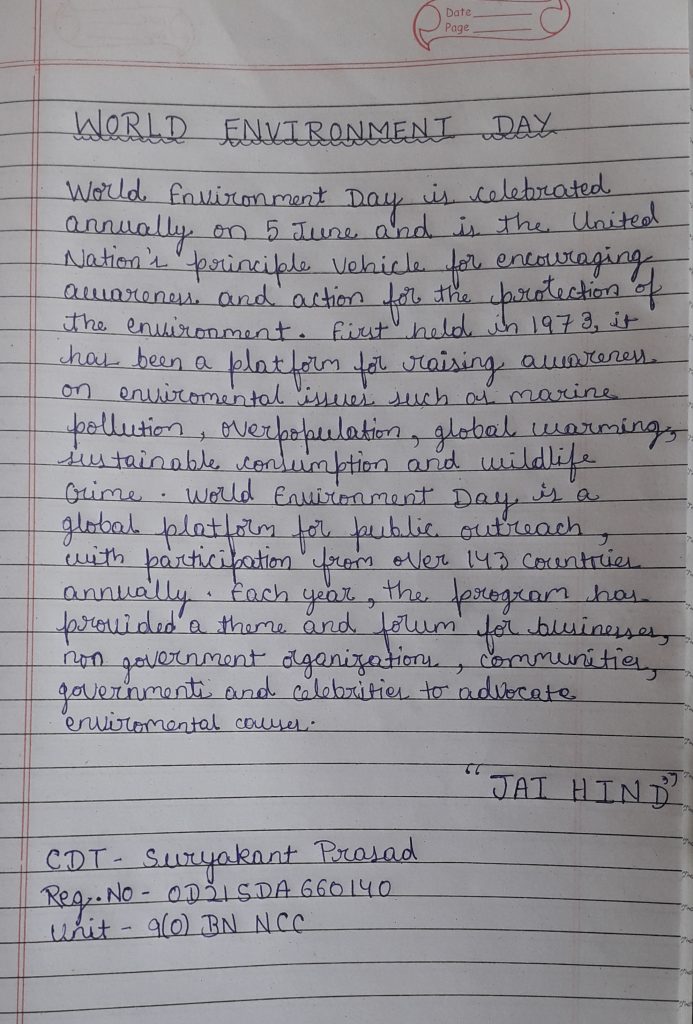 Date
Page
WORLD ENVIRONMENT DAY
World Environment Day is celebrated
annually on 5 June and is the United
Nation's principle vehicle for encouraging
awareness and action for the protection of
the environment. First held in 1973, it
has been a platform for raising awareness
on enviromental issues such as marine
pollution, overpopulation, global warming,
sustainable consumption and wildlife
Crime. World Environment Day is a
global platform for public outreach,
with participation from over 143 countries
annually. Each year, the program has
provided a theme and forum for businesses,
non government organizations, communities,
governments and celebrities to advocate
enviromental causes.
"JAI HIND"
CDT- Suryakant Prasad
Reg.No - OD21SDA660140
Unit - 9(O) BN NCC